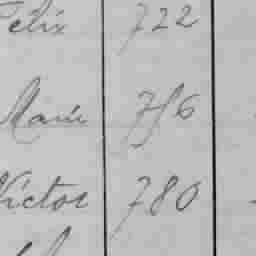 Felix 722
Marie 756
Victor 780